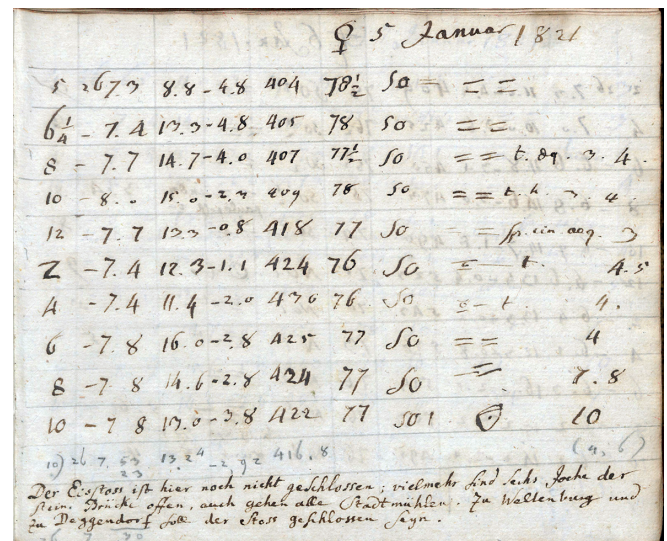 ♀ 5 Januar 1821
5 26 7.3 8.8 - 4.8 404 78½ SO = = =
6¼ - 7.4 13.3 - 4.8 405 78 SO = =
8 - 7.7 14.7 - 4.0 407 77½ SO = = t. 3. 4.
10 - 8.0 15.0 - 2.3 409 78 SO = = t. h. 3 4
12 - 7.7 13.3 - 0.8 418 77 SO = = 3
2 - 7.4 12.3 - 1.1 424 76 SO = - t. 4.5
4 - 7.4 11.4 - 2.0 430 76 SO = - t 4.
6 - 7.8 16.0 - 2.8 425 77 SO = = 4
8 - 7.8 14.6 - 2.8 424 77 SO = 7.8
10 - 7 8 13.0 - 3.8 422 77 SO 1 10
10) 26 7. 53 13.24 - 2.92 416.8 (4, 6)
23
Der Eisstoss ist hier noch nicht geschlossen; vielmehr sind sechs Joche der
stein. Brücke offen, auch gehen alle Stadtmühlen. Zu Weltenburg und
zu Deggendorf soll der Stoss geschlossen seyn.